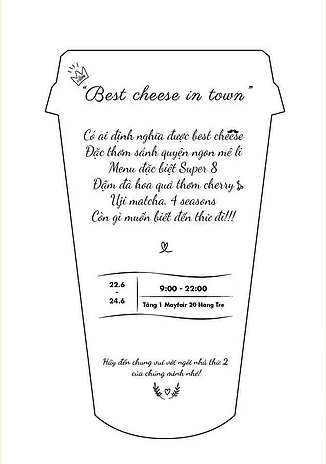 "Best cheese in town"
Có ai định nghĩa được best cheese
Đặc thơm sánh quyện ngon mê li
Menu đặc biệt Super 8
Đậm đà hoa quả thơm cherry
Uji matcha, 4 seasons
Còn gì muốn biết đến thử đi!!!
22.6
-
24.6
9:00 - 22:00
Tầng 1 Mayfair 20 Hàng Tre
Hãy đến chung vui với ngôi nhà thứ 2
của chúng mình nhé!